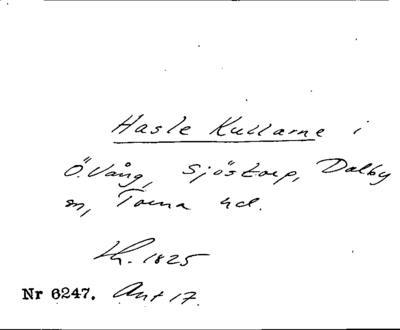 Hasle Kullarne i
Ö. Vång, Sjöstorp, Dalby
sn, Torna hd.
1825
Nr 6247. Ant 17.